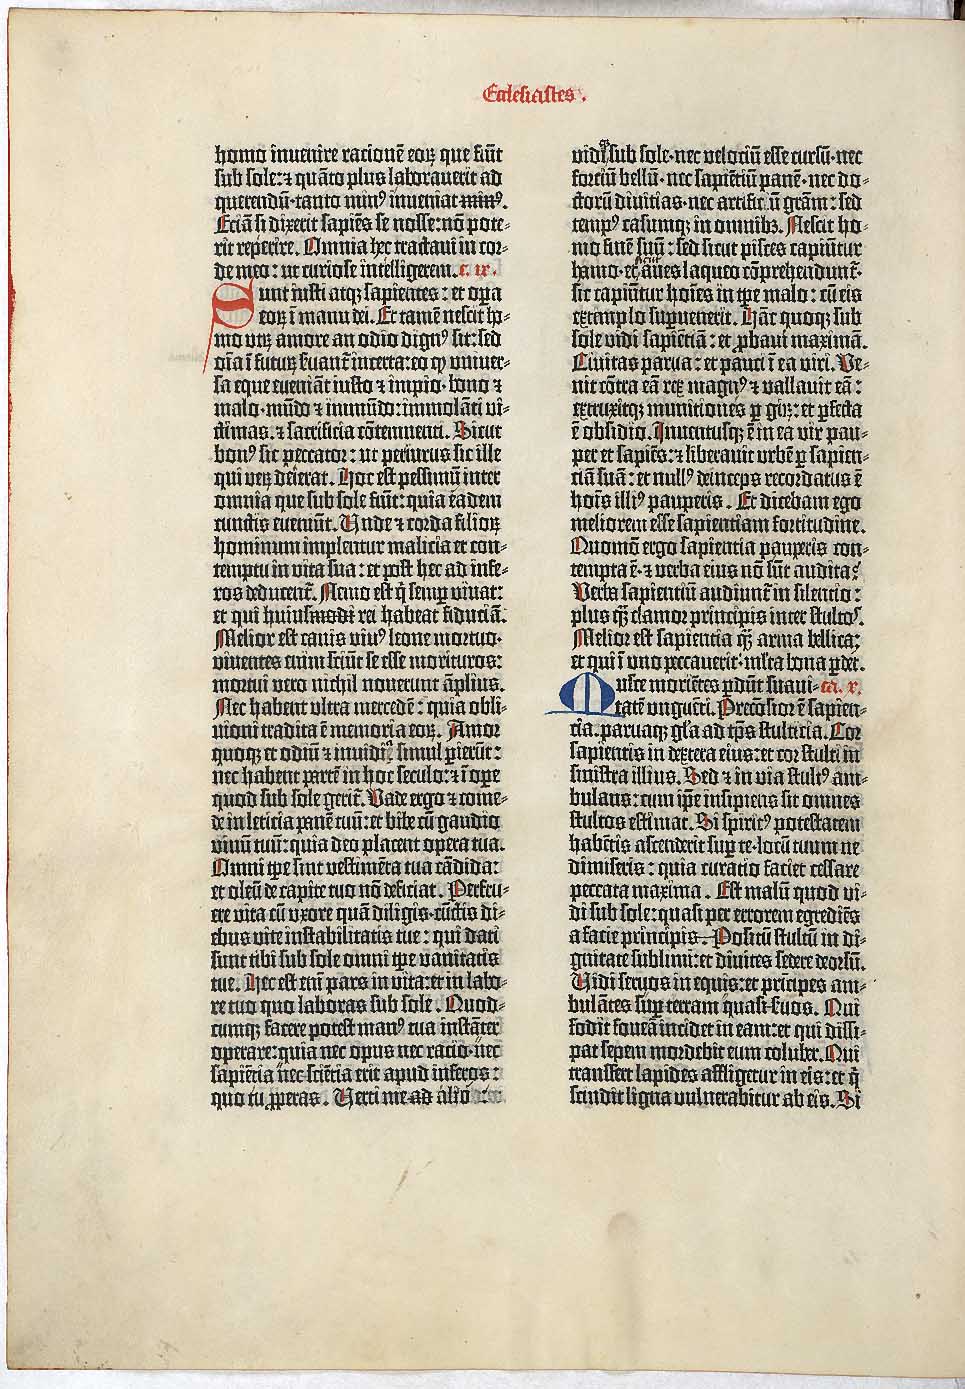 Ecclesiastes.
homo invenire racionē eoꝝ que fiūt
sub sole: ⁊ quāto plus laboraverit ad
querendū· tanto minꝰ inveniat minꝰ.
Eciā si dixerit sapiēs se nosse: nō pote-
rit reperire. Omnia hec tractavi in cor-
de meo: ut curiose intelligerem. c. ix.
Sunt iusti atqꝫ sapientes: et opa
eoꝝ ī manu dei. Et tamē nescit ho-
mo utꝝ amore an odio dignꝰ sit: sed
oīa ī futuꝝ servant̄ incerta: eo ꝙ univer-
sa eque eveniāt iusto ⁊ impio· bono ⁊
malo· mūdo ⁊ immūdo: immolāti vi-
ctimas. ⁊ sacrificia cōtemnenti. Sicut
bonꝰ sic peccator: ut periurus sic ille
qui veꝝ deierat. Hoc est pessimū inter
omnia que sub sole fiūt: quia eadem
cunctis eveniūt. Unde ⁊ corda filioꝝ
hominum implentur malicia et con-
temptu in vita sua: et post hec ad infe-
ros deducent̄. Nemo est q̇ semꝑ vivat:
et qui huiusmodi rei habeat fiduciā.
Melior est canis vivꝰ leone mortuo·
viventes enim sciūt se esse morituros:
mortui vero nichil noverunt āplius.
Nec habent ultra mercedē: quia obli-
vioni tradita ē memoria eoꝝ. Amor
quoqꝫ et odiū ⁊ invidia simul ꝑierūt:
nec habent partē in hoc seculo: ⁊ ī ope
quod sub sole gerit̄. Vade ergo ⁊ come-
de in leticia panē tuū: et bibe cū gaudio
vinū tuū: quia deo placent opera tua.
Omni tꝑe sint vestimēta tua cādida:
et oleū de capite tuo nō deficiat. Perfru-
ere vita cū uxore quā diligis· cūctis di-
ebus vite instabilitatis tue: qui dati
sunt tibi sub sole omni tꝑe vanitatis
tue. Hec est enī pars in vita: et in labo-
re tuo quo laboras sub sole. Quod-
cumqꝫ facere potest manꝰ tua instāter
operare: quia nec opus nec racio· nec
sapiētia nec sciētia erit apud inferos:
quo tu ꝓperas. Verti me ad alio
vidiqꝫ sub sole· nec velociū esse cursū· nec
forciū bellū· nec sapiētiū panē· nec do-
ctorū divitias· nec artificū grām: sed
tempꝰ casumqꝫ in omnibꝫ. Nescit ho-
mo finē suū: sed sicut pisces capiūtur
hamo· et sicut aves laqueo cōprehendunt̄·
sic capiūtur hoīes in tꝑe malo: cū eis
extemplo suꝑvenerit. Hāc quoqꝫ sub
sole vidi sapiētiā: et ꝓbavi maximā.
Civitas parva: et pauci ī ea viri. Ve-
nit cōtra eā rex magnꝰ ⁊ vallavit eā:
extruxitqꝫ munitiones ꝑ giꝝ: et ꝑfecta
ē obsidio. Inventusqꝫ ē in ea vir pau-
per et sapiēs: ⁊ liberavit urbē ꝑ sapien-
ciā suā: et nullꝰ deinceps recordatus ē
hoīs illiꝰ pauperis. Et dicebam ego
meliorem esse sapientiam fortitudine.
Quomō ergo sapientia pauperis con-
tempta ē· ⁊ verba eius nō sūt audita?
Verba sapientiū audiunt̄ in silentio:
plus q̄ꝫ clamor principis inter stultos.
Melior est sapientia q̄ꝫ arma bellica:
et qui ī uno peccaverit· multa bona ꝑdet.
Musce moriētes ꝑdūt suavi- ca. x.
tatē ungueti. Preciosior ē sapien-
cia· parvaqꝫ glīa ad tꝑs stulticia. Cor
sapientis in dextera eius: et cor stulti in
sinistra illius. Sed ⁊ in via stultꝰ am-
bulans: cum ipē insipiens sit omnes
stultos estimat. Si spiritꝰ potestatem
habētis ascenderit suꝑ te· locū tuum ne
dimiseris: quia curatio faciet cessare
peccata maxima. Est malū quod vi-
di sub sole: quasi per errorem egrediēs
a facie principis. Positū stultū in di-
gnitate sublimi: et divites sedere deorsū.
Vidi servos in equis: et prīcipes am-
bulātes suꝑ terram quasi servos. Qui
fodit foveā incidet in eam: et qui dissi-
pat sepem mordebit eum coluber. Qui
transfert lapides affligetur in eis: et q̇
scindit ligna vulnerabitur ab eis. Si